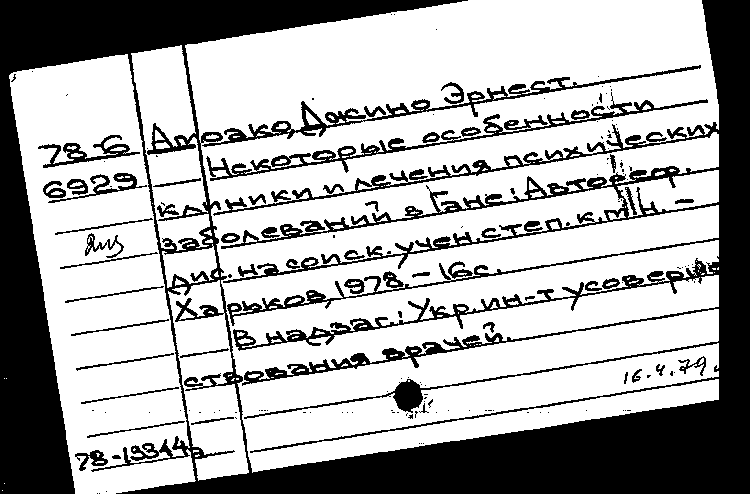 78-6 Амоако, Джино Эрнест.
6929 Некоторые особенности
клиники и лечения психических
заболеваний в Гане: Автореф.
дис. на соиск. учен. степ. к.м.н. –
Харьков, 1978. – 16 с.
В надзаг.: Укр. ин-т усовершен
ствования врачей.
16.4.79.
78-13844а